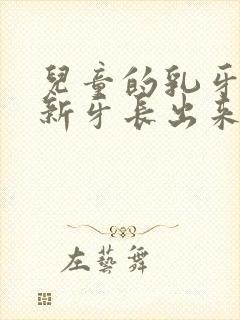 兒童的乳牙
新牙長出來
左藝舞